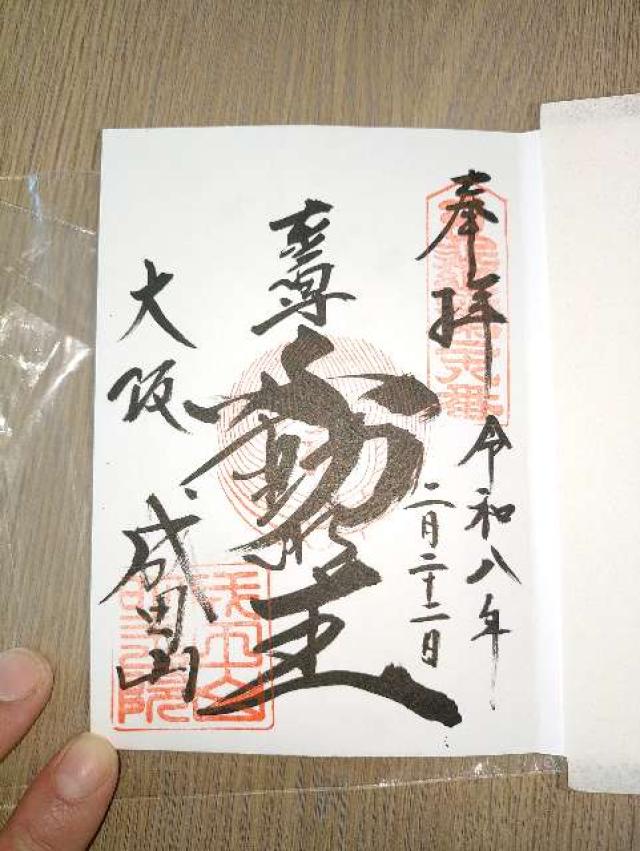 奉拝
令和八年
二月二十二日
本尊
不動明王
大阪
成田山